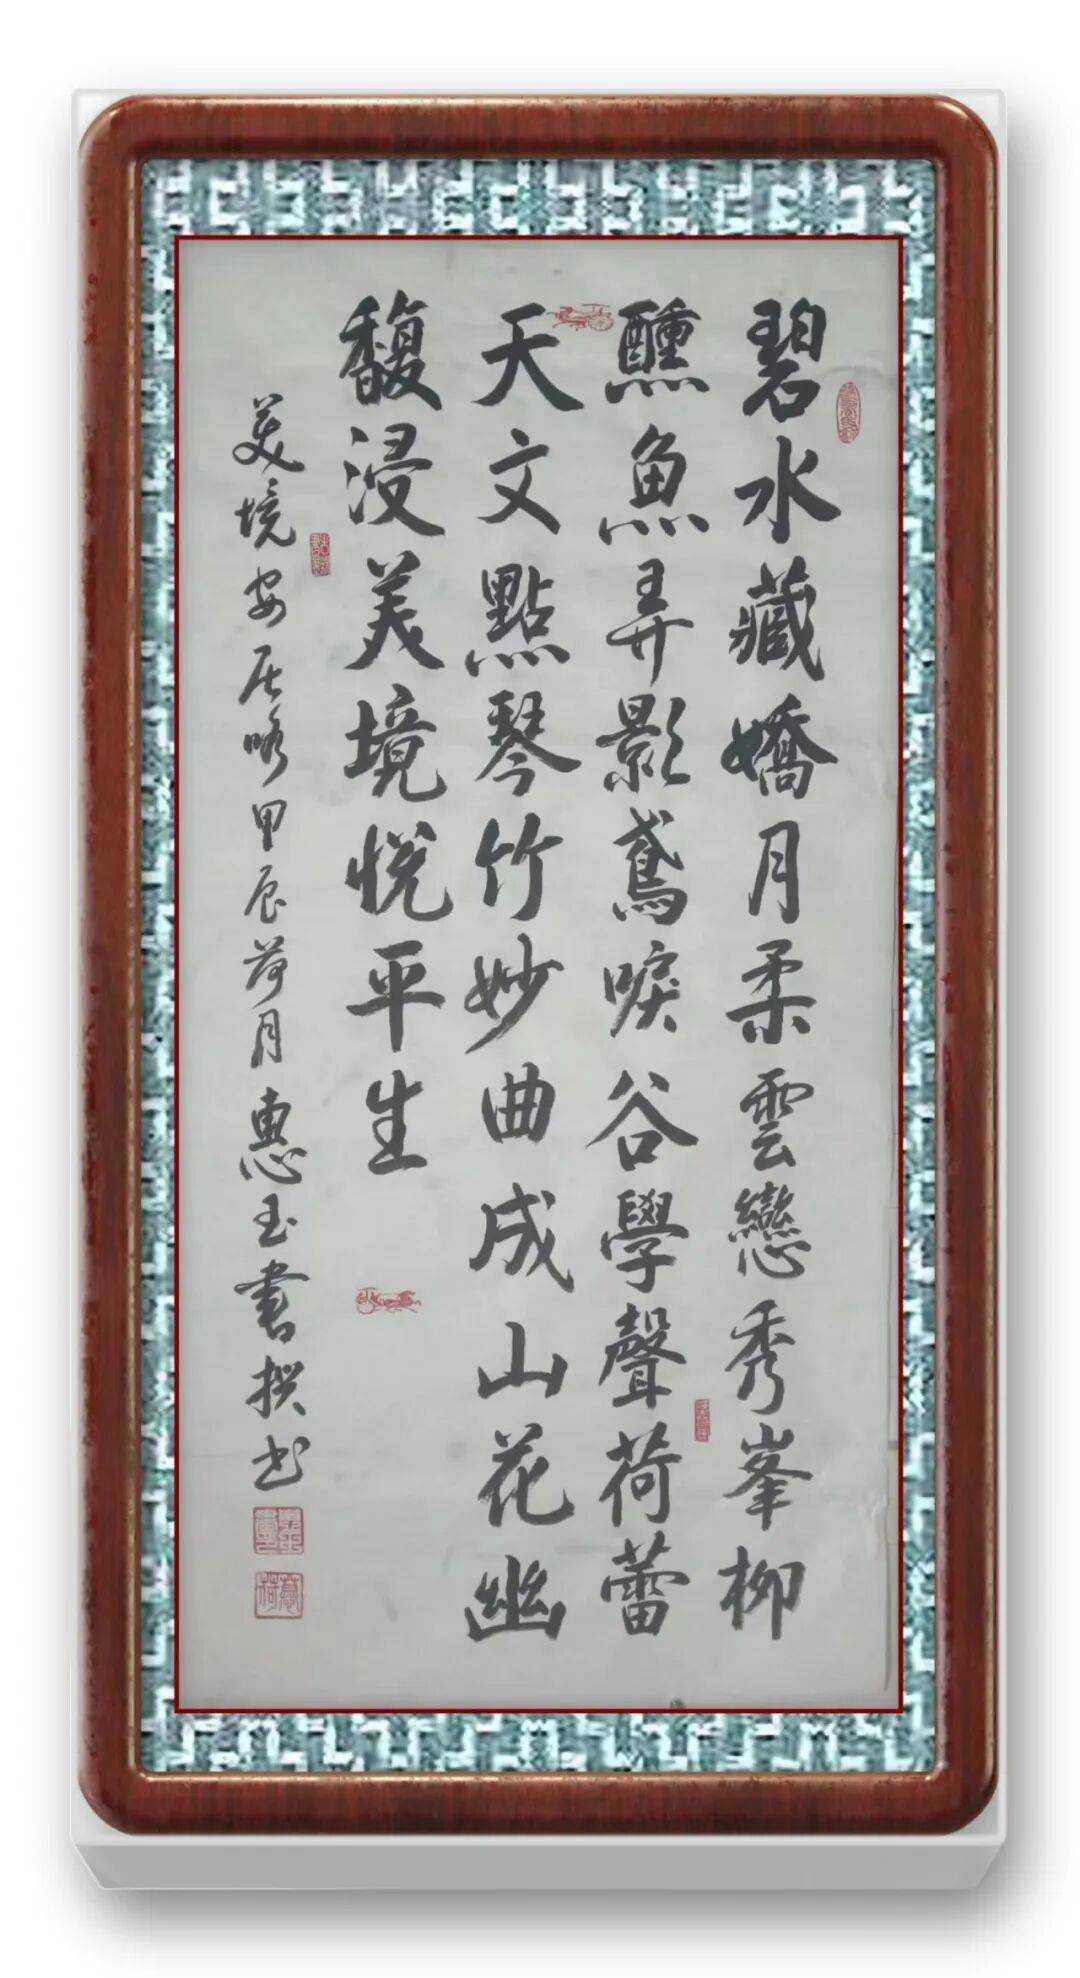 碧水藏嬌月柔雲戀秀峯柳
醺魚弄影鳶唳谷學聲荷蕾
天文點琴竹妙曲成山花幽
馥浸美境悦平生
美境安居吟甲辰荷月惠玉書撰书